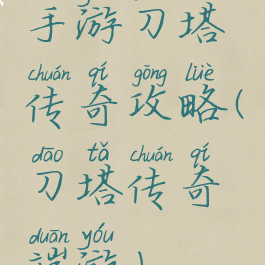 手游刀塔
chuán qí gōng lüè
传奇攻略(
dāo tǎ chuán qí
刀塔传奇
duān yóu
端游)